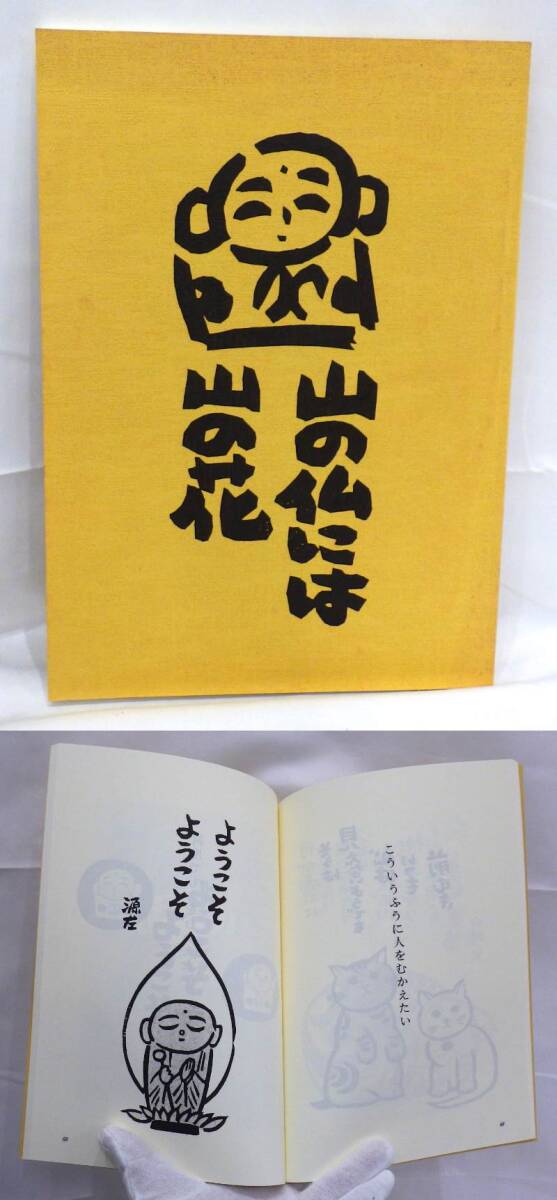 山の仏には
山の花
ようこそ
ようこそ
源左
こういうふうに人をむかえたい